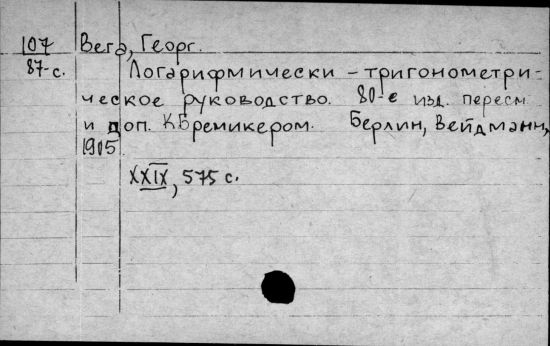 107 Вега, Георг.
87-с. Логарифмически-тригонометри-
ческое руководство. 80-е изд. пересм
и доп. К Бремикером. Берлин, Вейдманн,
1905
XXIX, 575 с.